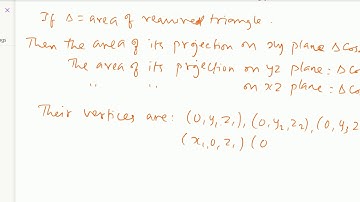 If Δ = area of required triangle.
Then the area of its projection on xy plane Δ cos
The area of its projection on yz plane : Δ co
" " on xz plane : Δ c
Their vertices are : (0, y₁, z₁), (0, y₂, z₂), (0, y₃ z
(x₁, 0, z₁) (0